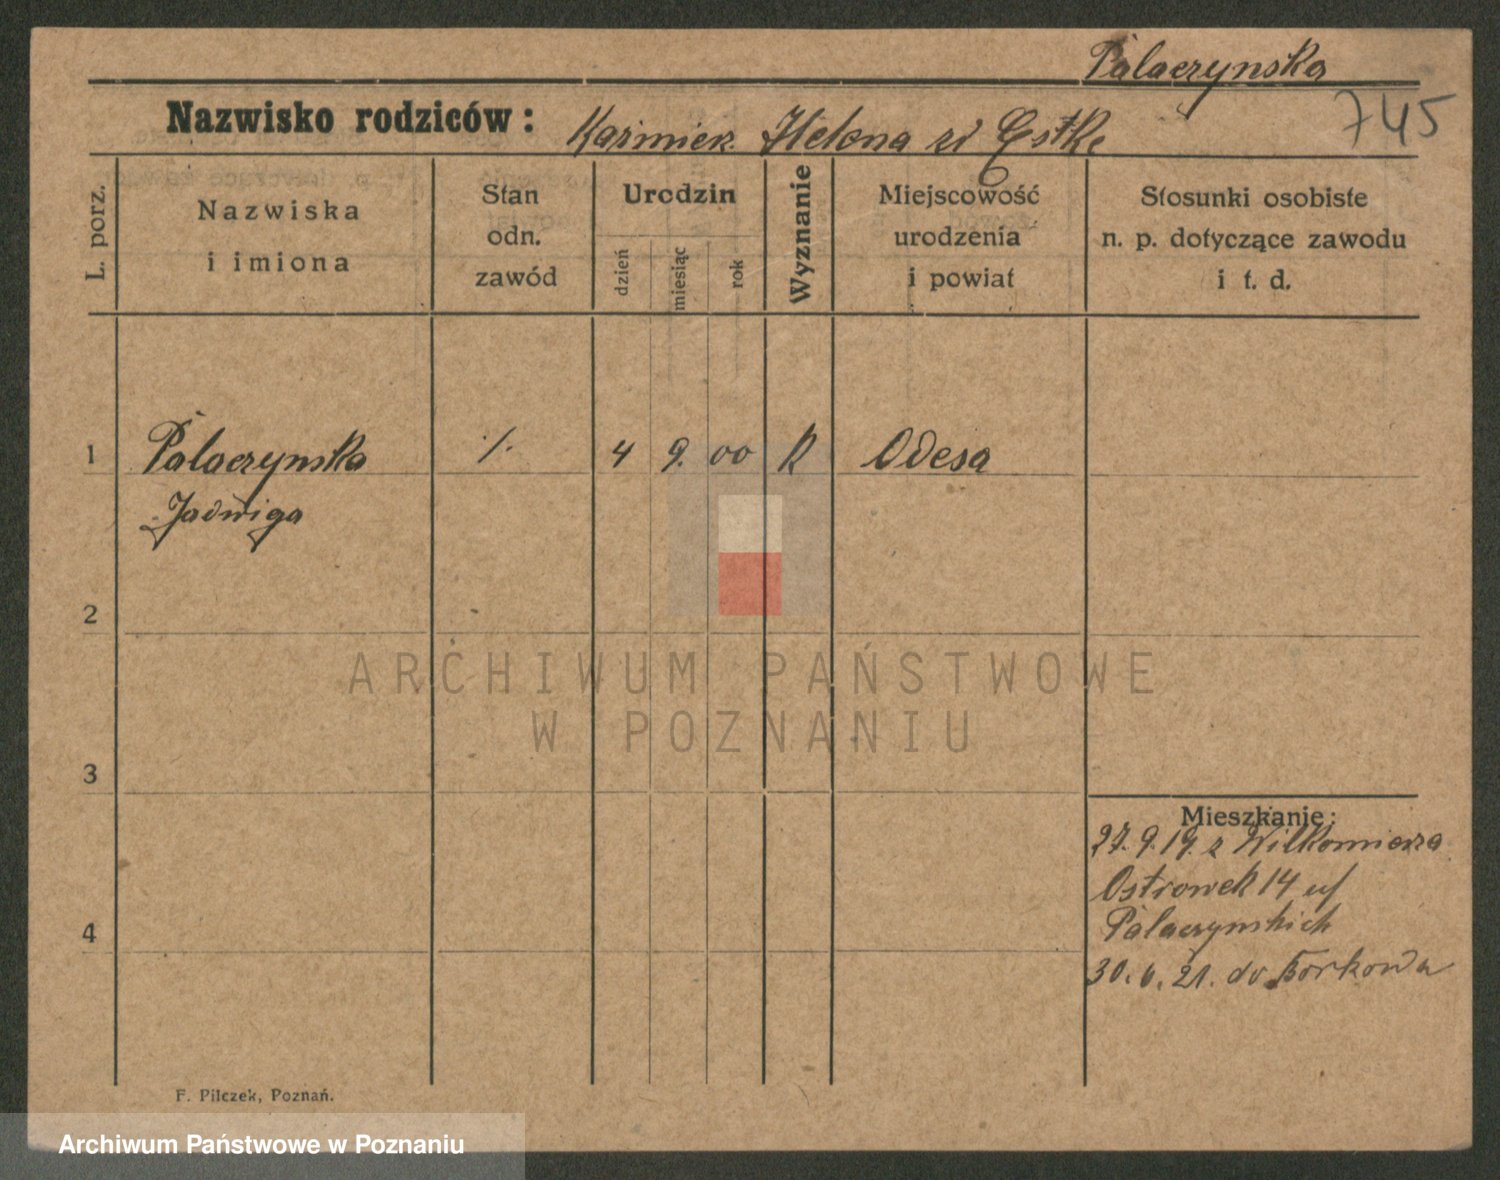 Palaczynska
745
Nazwisko rodziców: Kazimierz. Helena zd Estke
L. porz.
Nazwiska
i imiona
Stan
odn.
zawód
Urodzin
dzień
miesiąc
rok
Wyznanie
Miejscowość
urodzenia
i powiat
Stosunki osobiste
n. p. dotyczące zawodu
i t. d.
1 Palaczynska ./. 4 9. 00 K Odesa
Jadwiga
2
ARCHIWUM PAŃSTWOWE
W POZNANIU
3
Mieszkanie:
27.9.19. z Wilkomierza
Ostrowek 14 u/
4
Palaczynskich
30.6.21. do Borkowa
F. Pilczek, Poznań.
Archiwum Państwowe w Poznaniu